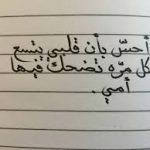 أحسّ بأن قلبي يتسع
كل مرّه تضحك فيها
أمي .